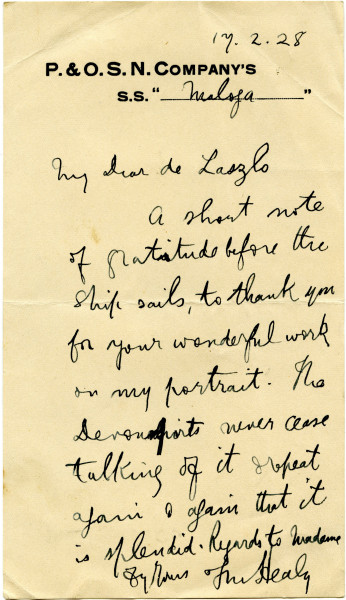 17.2.28
P. & O. S. N. COMPANY'S
S.S. "Maloja"
My Dear de Laszlo
A short note
of gratitude before the
ship sails, to thank you
for your wonderful work
on my portrait. The
Devonports never cease
talking of it & repeat
again & again that it
is splendid. Regards to Madame
Sy Yours Tim Healy